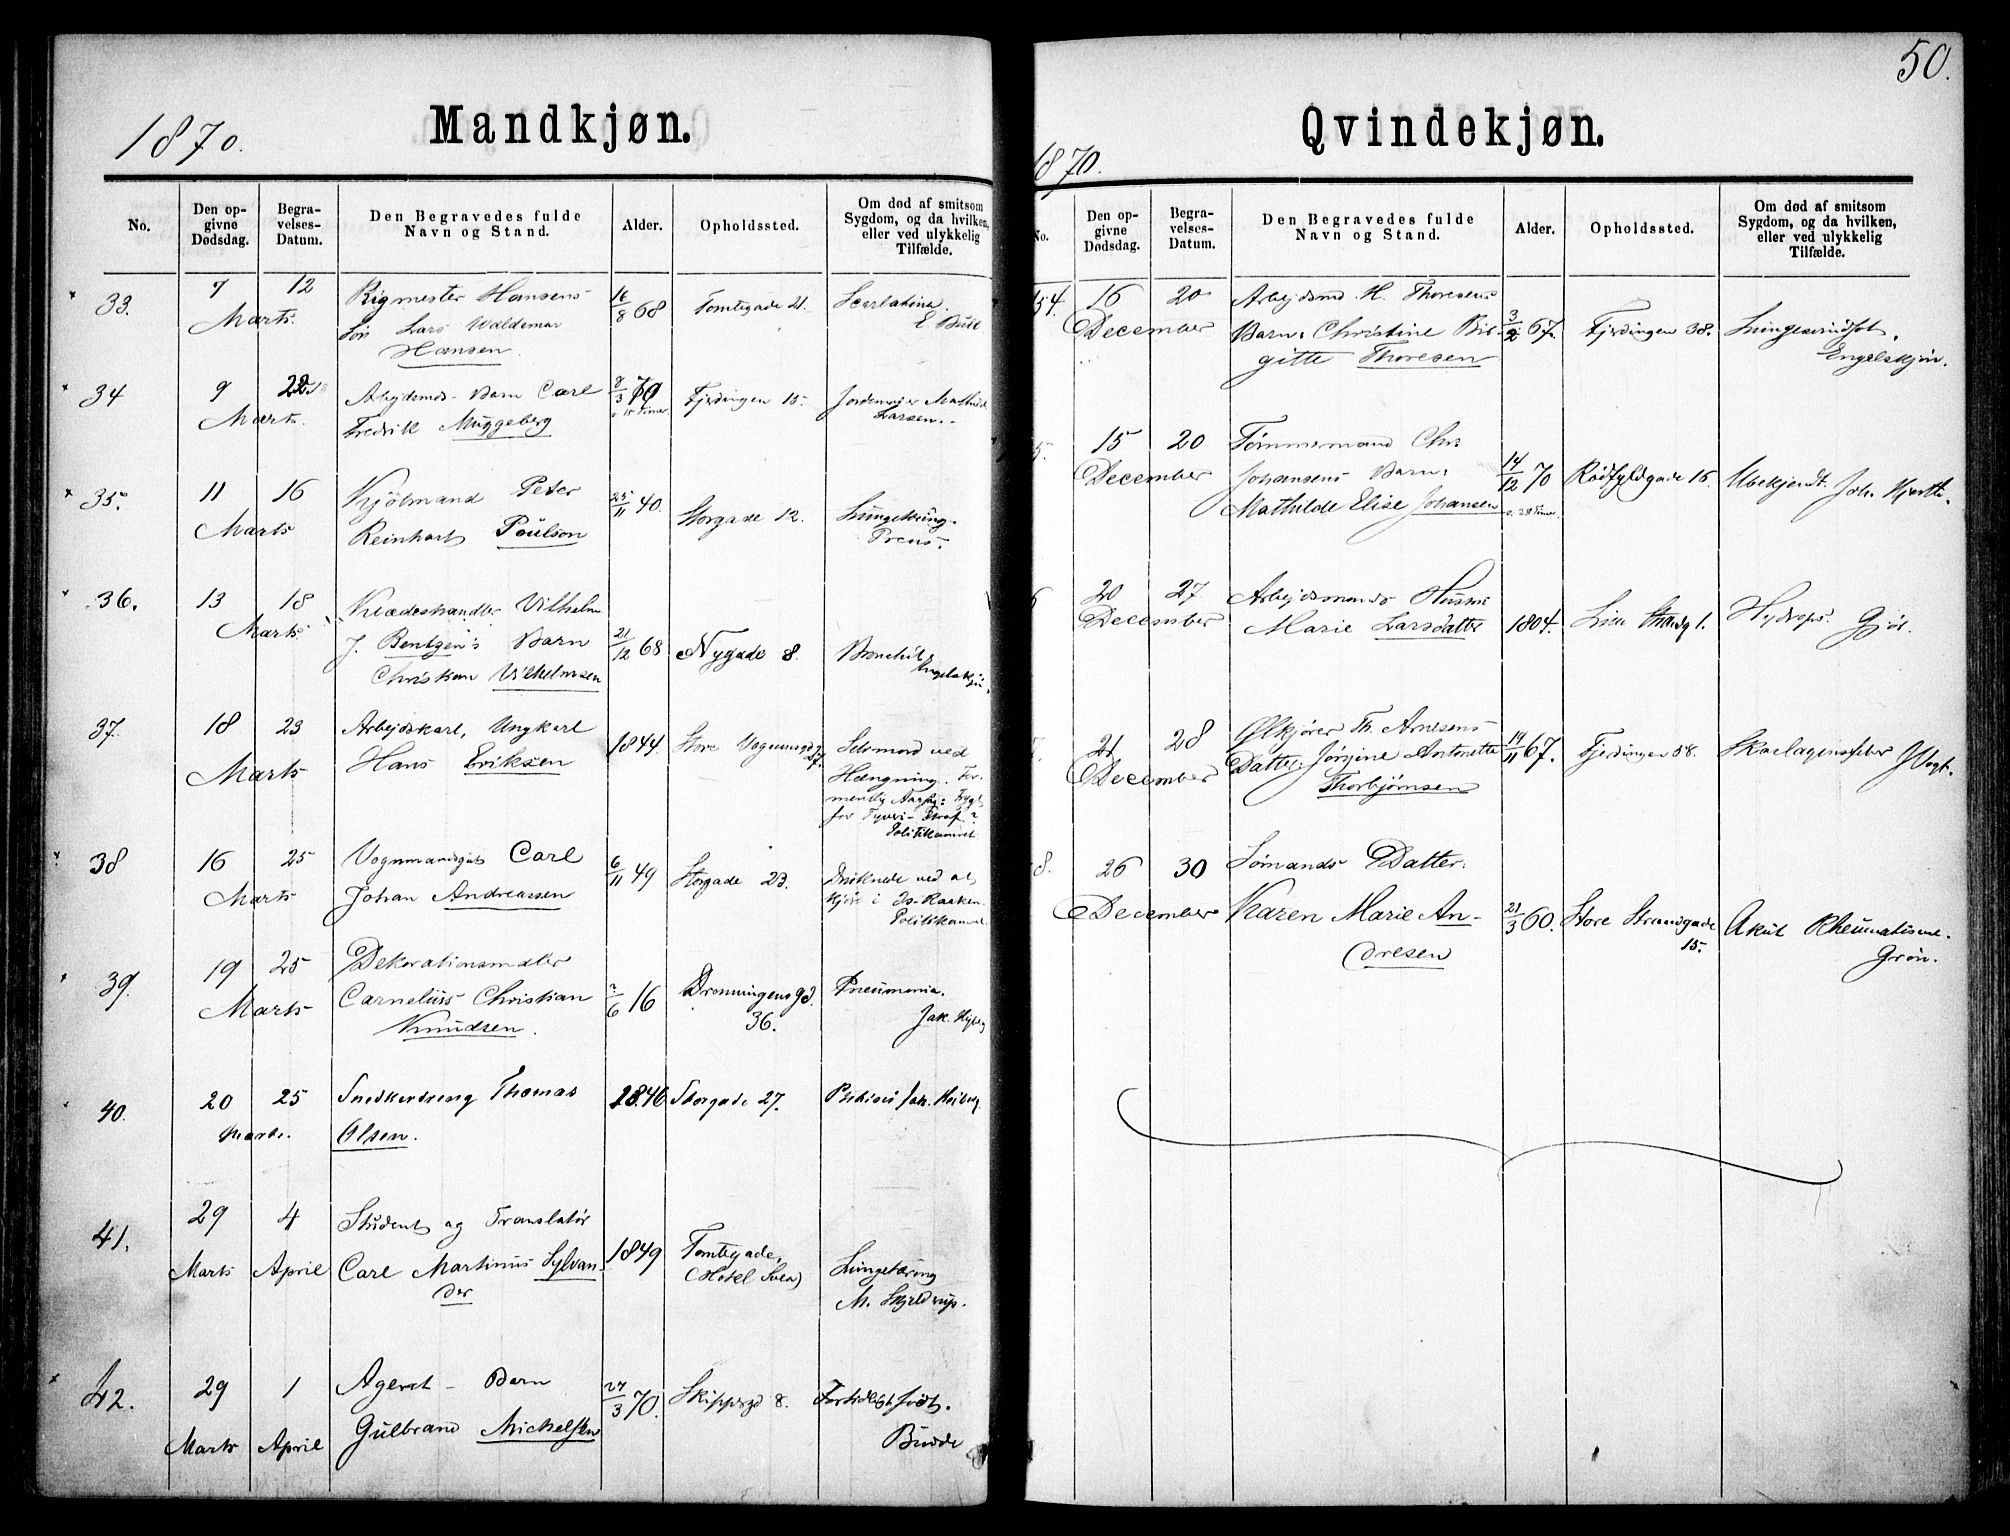 50.
1870.
Mandkjøn.
No.
Den op-
givne
Dødsdag.
Begra-
velses-
Datum.
Den Begravedes fulde
Navn og Stand.
Alder.
Opholdssted.
Om død af smitsom
Sygdom, og da hvilken,
eller ved ulykkelig
Tilfælde.
33. 7 12 Rigmester Hansens 16/8 68 Tomtegade 21. Scarlatina.
Marts. Søn Lars Waldemar E Bull
Hansen.
34 9 22 Arbejdsmds Barn Carl 8/3 70 Fjerdingen 15. Jordemoder Mathilde
Marts. Fredrik Muggeberg 15 Timer Larsen.
35. 11 16 Kjøbmand Peter 25/11 40. Storgade 12. Lungetæring.
Marts Reinhart Poulson Prens.
36. 13 18 Klædeshandler Vilhelm
Marts J. Bentzen's Barn 21/12 68 Nygade 8. Bronchit.
Christian Vilhelmsen Engelskjøn.
37. 18 23 Arbejdskarl, Ungkarl 1844. Store Vognmsgd 27. Selvmord ved
Marts Hans Eriksen Hængning. For-
mentlig Aarsag: Frygt
for Tyveri-Straf?
Politikamret
38 16 25 Vognmandsgut Carl 6/11 49 Storgade 23. Druknede ved at
Marts Johan Andreassen kjøre i Is-Raaken.
Politikamret
39. 19 25 Dekorationsmaler
Marts Carnelius Christian 2/6 16 Dronningensgd. Pneumonia.
Knudsen. 36. Jak. Hejberg
40. 20 25 Snedkerdreng Thomas 1846 Storgade 27. Phthisis Jak. Heiberg.
Marts. Olsen.
41. 29 4 Student og Translatør
Marts April Carl Martinus Sylvan- 1849 Tomtegade, Lungetæring
der (Hotel Svea) M. Skjelderup.
42. 29 1 Agent Barn 27/3 70. Skippergd 8. Fortidligt født.
Marts April Gulbrand Michelsen Budde
1870.
Qvindekjøn.
No.
Den op-
givne
Dødsdag.
Begra-
velses-
Datum.
Den Begravedes fulde
Navn og Stand.
Alder.
Opholdssted.
Om død af smitsom
Sygdom, og da hvilken,
eller ved ulykkelig
Tilfælde.
54. 16 20 Arbejdsmd H. Thoresens
December Barn: Christine Bir- 3/2 67. Fjerdingen 38. Lungesvindsot.
gitte Thoresen Engelskjøn.
5. 15 20 Tømmermand Chr.
December Johansens Barn: 14/12 70 Rødfyldgade 16. Ubekjendt. Joh. Hjort.
Mathilde Elise Johansen 28 Timer.
6 20 27 Arbejdsmands Hustru
December Marie Larsdatter 1804. Lille Strandg 1. Hydrops. Gjør.
7. 21 28 Ølkjører Th. Arnesens
December Datter: Jørgine Antonette 19/11 67. Fjerdingen 58. Skarlagensfeber J Vogt.
Thorbjørnsen
8. 26 30 Sømands Datter:
December Karen Marie An- 21/3 60. Store Strandgade Akut Rheumatisme.
dresen 15. Grøn.